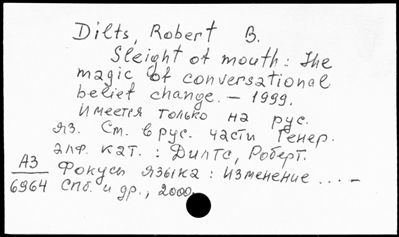 Dilts, Robert B.
Sleight of mouth: The
magic of conversational
belief change. – 1999.
Имеется только на рус.
яз. См. в рус. части Генер.
алф. кат.: Дилтс, Роберт.
АЗ Фокусы языка: Изменение ... –
6964 Спб. и др., 2000.